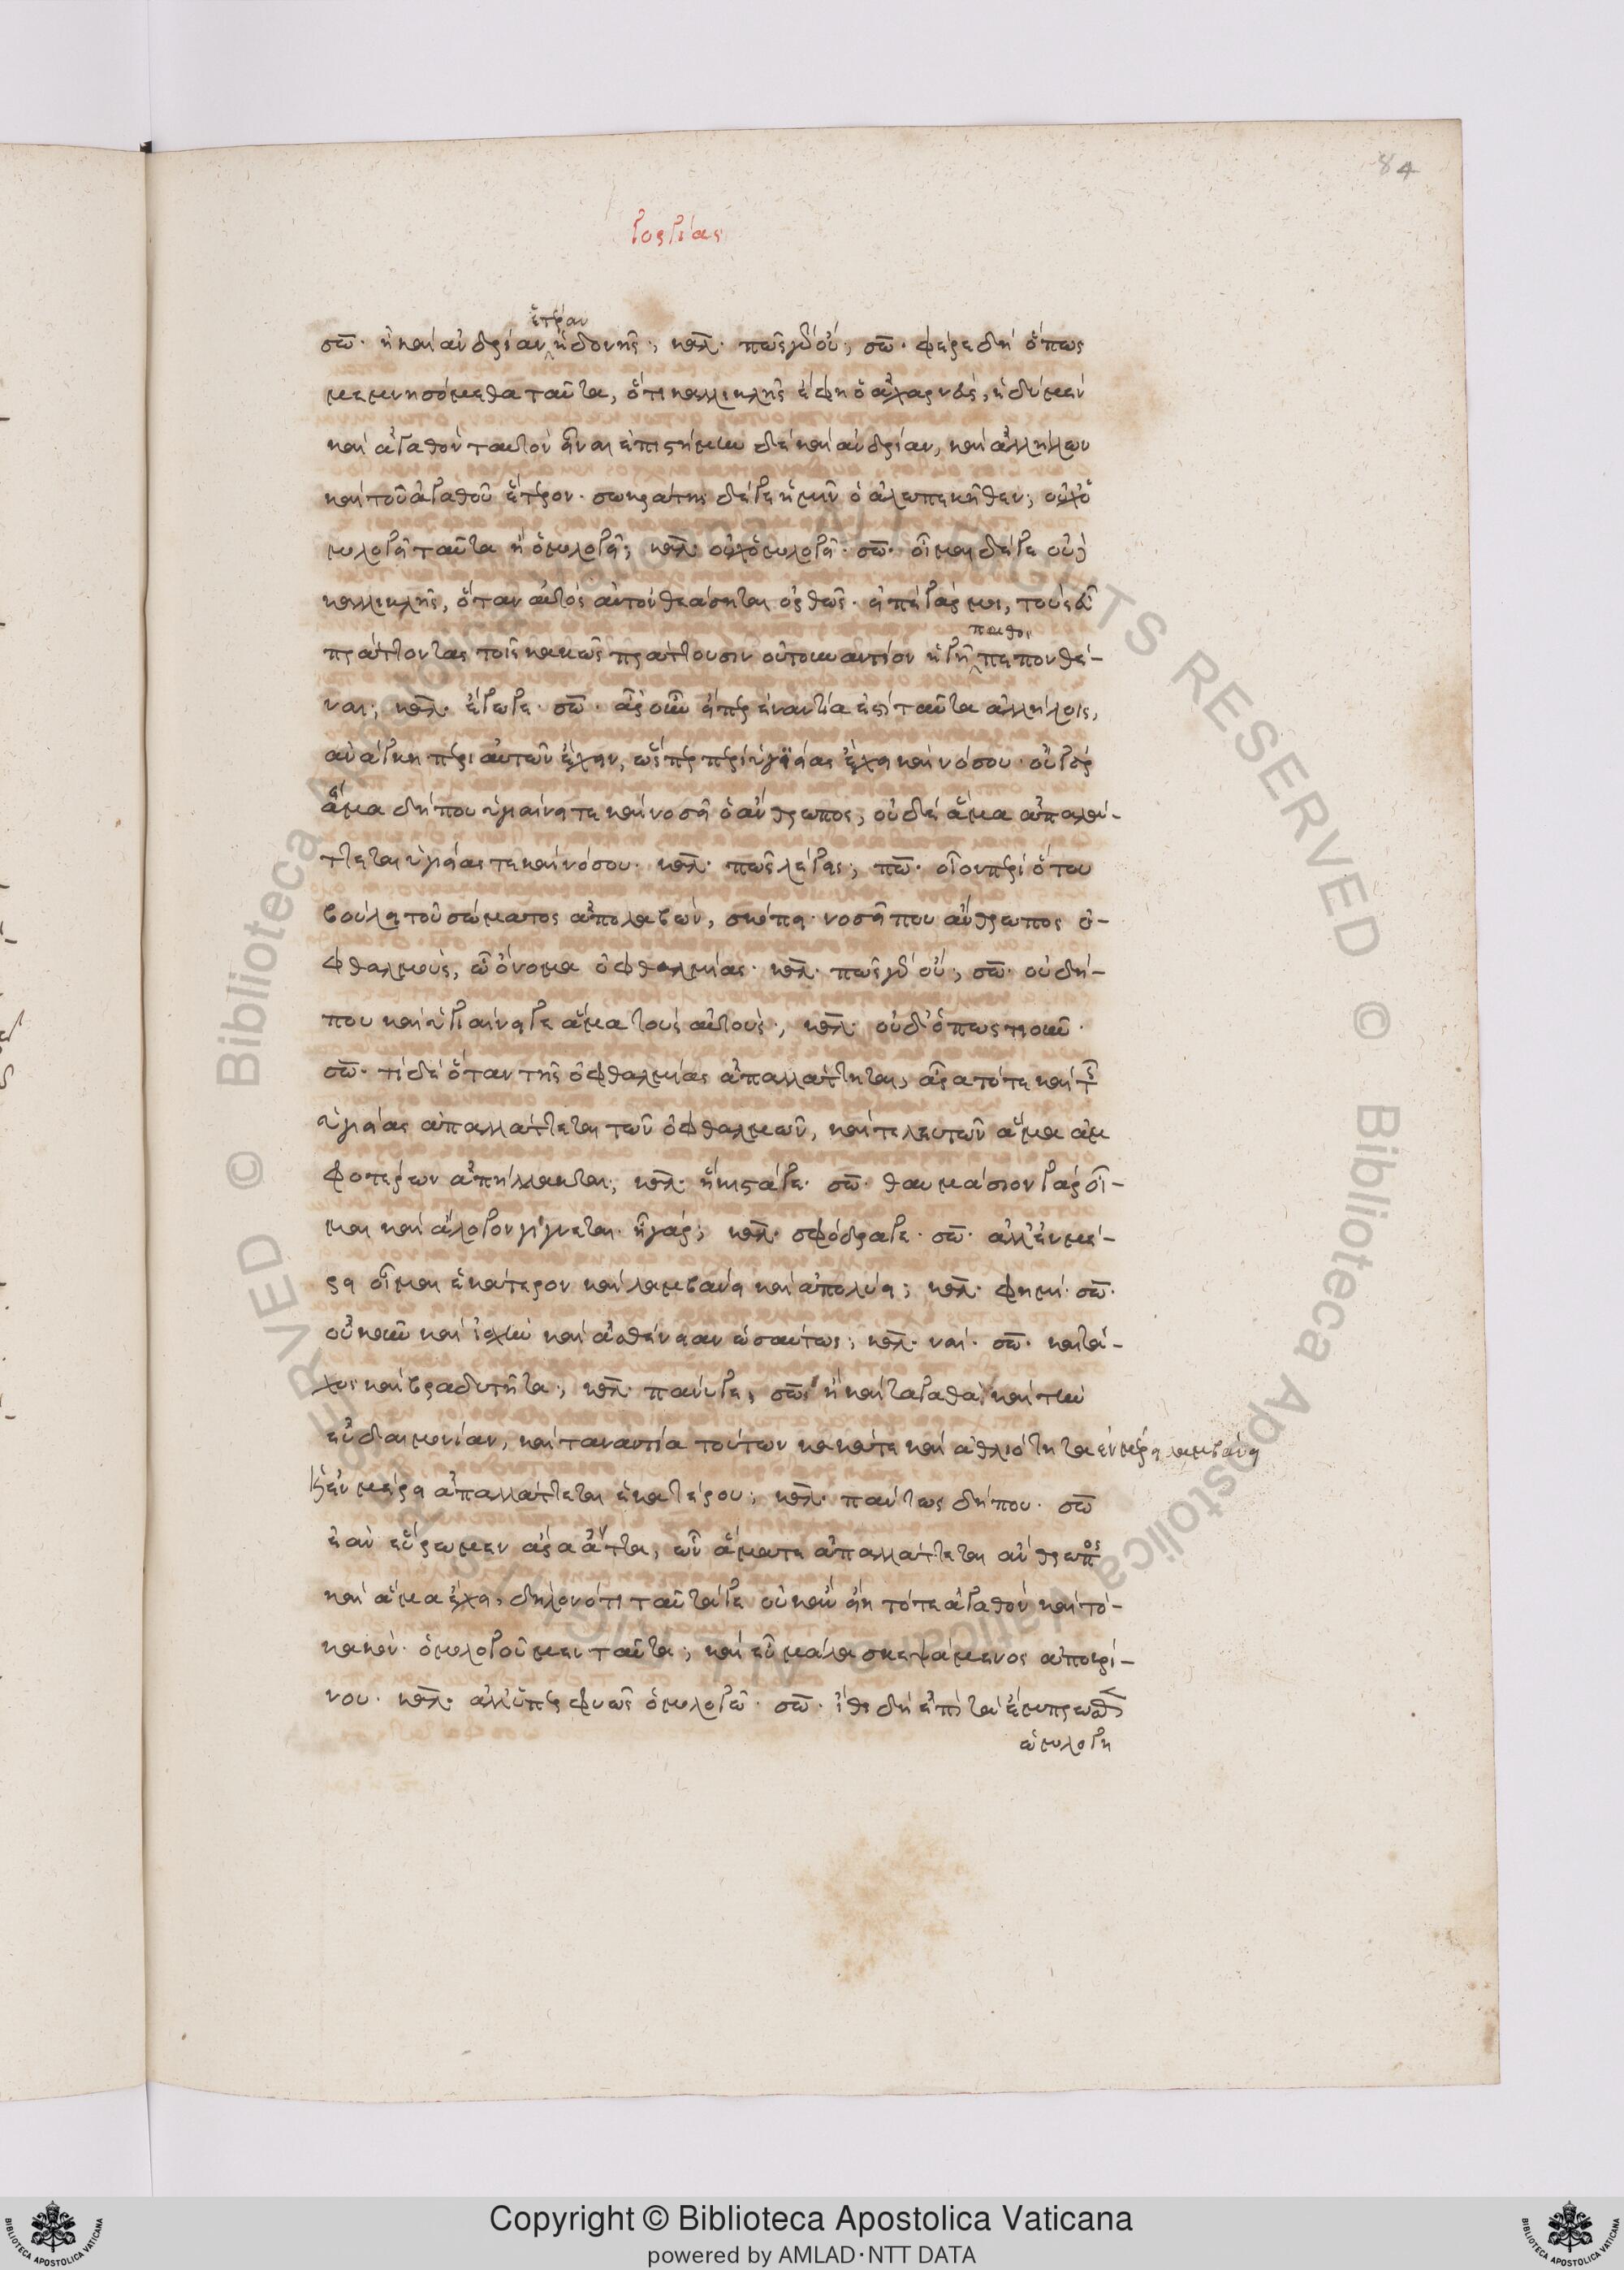 84
Γοργίας
ἑτέραν
σω̅· ἢ καὶ ἀνδρίαν ἡδονῆς; καλ̅· πῶς γὰρ οὔ; σω̅· φέρε δὴ ὅπως
μεμνησόμεθα ταῦτα, ὅτι καλλικλῆς ἔφη ὁ ἀχαρνεύς, ἡδὺ μὲν
καὶ ἀγαθὸν ταυτὸν εἶναι ἐπιστήμην δὲ καὶ ἀνδρίαν, καὶ ἀλλήλων
καὶ τοῦ ἀγαθοῦ ἕτερον· σωκράτης δέ γε ἡμῖν ὁ ἀλωπεκῆθεν; οὐχ ὁ
μολογεῖ ταῦτα ἢ ὁμολογεῖ; καλ̅· οὐχ ὁμολογεῖ· σω̅· οἶμαι δέ γε οὐδὲ
καλλικλῆς, ὅταν αὐτὸς αὑτὸν θεάσηται ὀρθῶς· εἰπὲ γάρ μοι, τοὺς εὖ
παθος
πράττοντας τοῖς κακῶς πράττουσιν οὐ τοὐναντίον ἡγῇ πεπονθέ-
ναι; καλ̅· ἔγωγε· σω̅· ἆρ' οὖν εἴπερ ἐναντία ἐστὶ ταῦτα ἀλλήλοις,
ἀνάγκη περὶ αὐτῶν ἔχειν, ὥσπερ περὶ ὑγιείας ἔχει καὶ νόσου· οὐ γὰρ
ἅμα δήπου ὑγιαίνει τε καὶ νοσεῖ ὁ ἄνθρωπος; οὐδὲ ἅμα ἀπαλάτ-
τεται ὑγιείας τε καὶ νόσου· καλ̅· πῶς λέγεις; πω̅· οἷον περὶ ὅτου
βούλει τοῦ σώματος ἀπολαβών, σκόπει· νοσεῖ που ἄνθρωπος ὀ-
φθαλμούς, ᾧ ὄνομα ὀφθαλμίας· καλ̅· πῶς γὰρ οὔ; σω̅· οὐ δή-
που καὶ ὑγιαίνει γε ἅμα τοὺς αὐτούς; καλ̅· οὐδ' ὁπωστιοῦν·
σω̅· τί δὲ ὅταν τῆς ὀφθαλμίας ἀπαλλάττηται, ἆρα τότε καὶ τῆς
ὑγιείας ἀπαλλάττεται τῶν ὀφθαλμῶν, καὶ τελευτῶν ἅμα ἀμ
φοτέρων ἀπήλλακται; καλ̅· ἥκιστά γε· σω̅· θαυμάσιον γὰρ οἶ-
μαι καὶ ἄλογον γίγνεται· ἦ γάρ; καλ̅· σφόδρα γε· σω̅· ἀλλ' ἐν μέ-
ρει οἶμαι ἑκάτερον καὶ λαμβάνει καὶ ἀπολύει; καλ̅· φημί· σω̅·
οὐκοῦν καὶ ἰσχὺν καὶ ἀσθένειαν ὡσαύτως; καλ̅· ναί· σω̅· καὶ τά-
χος καὶ βραδυτῆτα; καλ̅· πάνυ γε; σω̅· ἦ καὶ τἀγαθὰ καὶ τὴν
εὐδαιμονίαν, καὶ τἀναντία τούτων κακά τε καὶ ἀθλιότητα ἐν μέρει λαμβάνει
καὶ ἐν μέρει ἀπαλλάττεται ἑκατέρου; καλ̅· πάντως δήπου· σω̅
ἐὰν εὕρωμεν ἄρα ἄττα, ὧν ἅμα τε ἀπαλλάττεται ἄνθρωπος
καὶ ἅμα ἔχει, δηλονότι ταῦτά γε οὐκ ἂν εἴη τό τε ἀγαθὸν καὶ τὸ-
κακόν· ὁμολογοῦμεν ταῦτα; καὶ εὖ μάλα σκεψάμενος ἀποκρί-
νου· καλ̅· ἀλλ' ὑπερφυῶς ὁμολογῶ· σω̅· ἴθι δὴ ἐπὶ τὰ ἔμπροσθεν
ὡμολογη